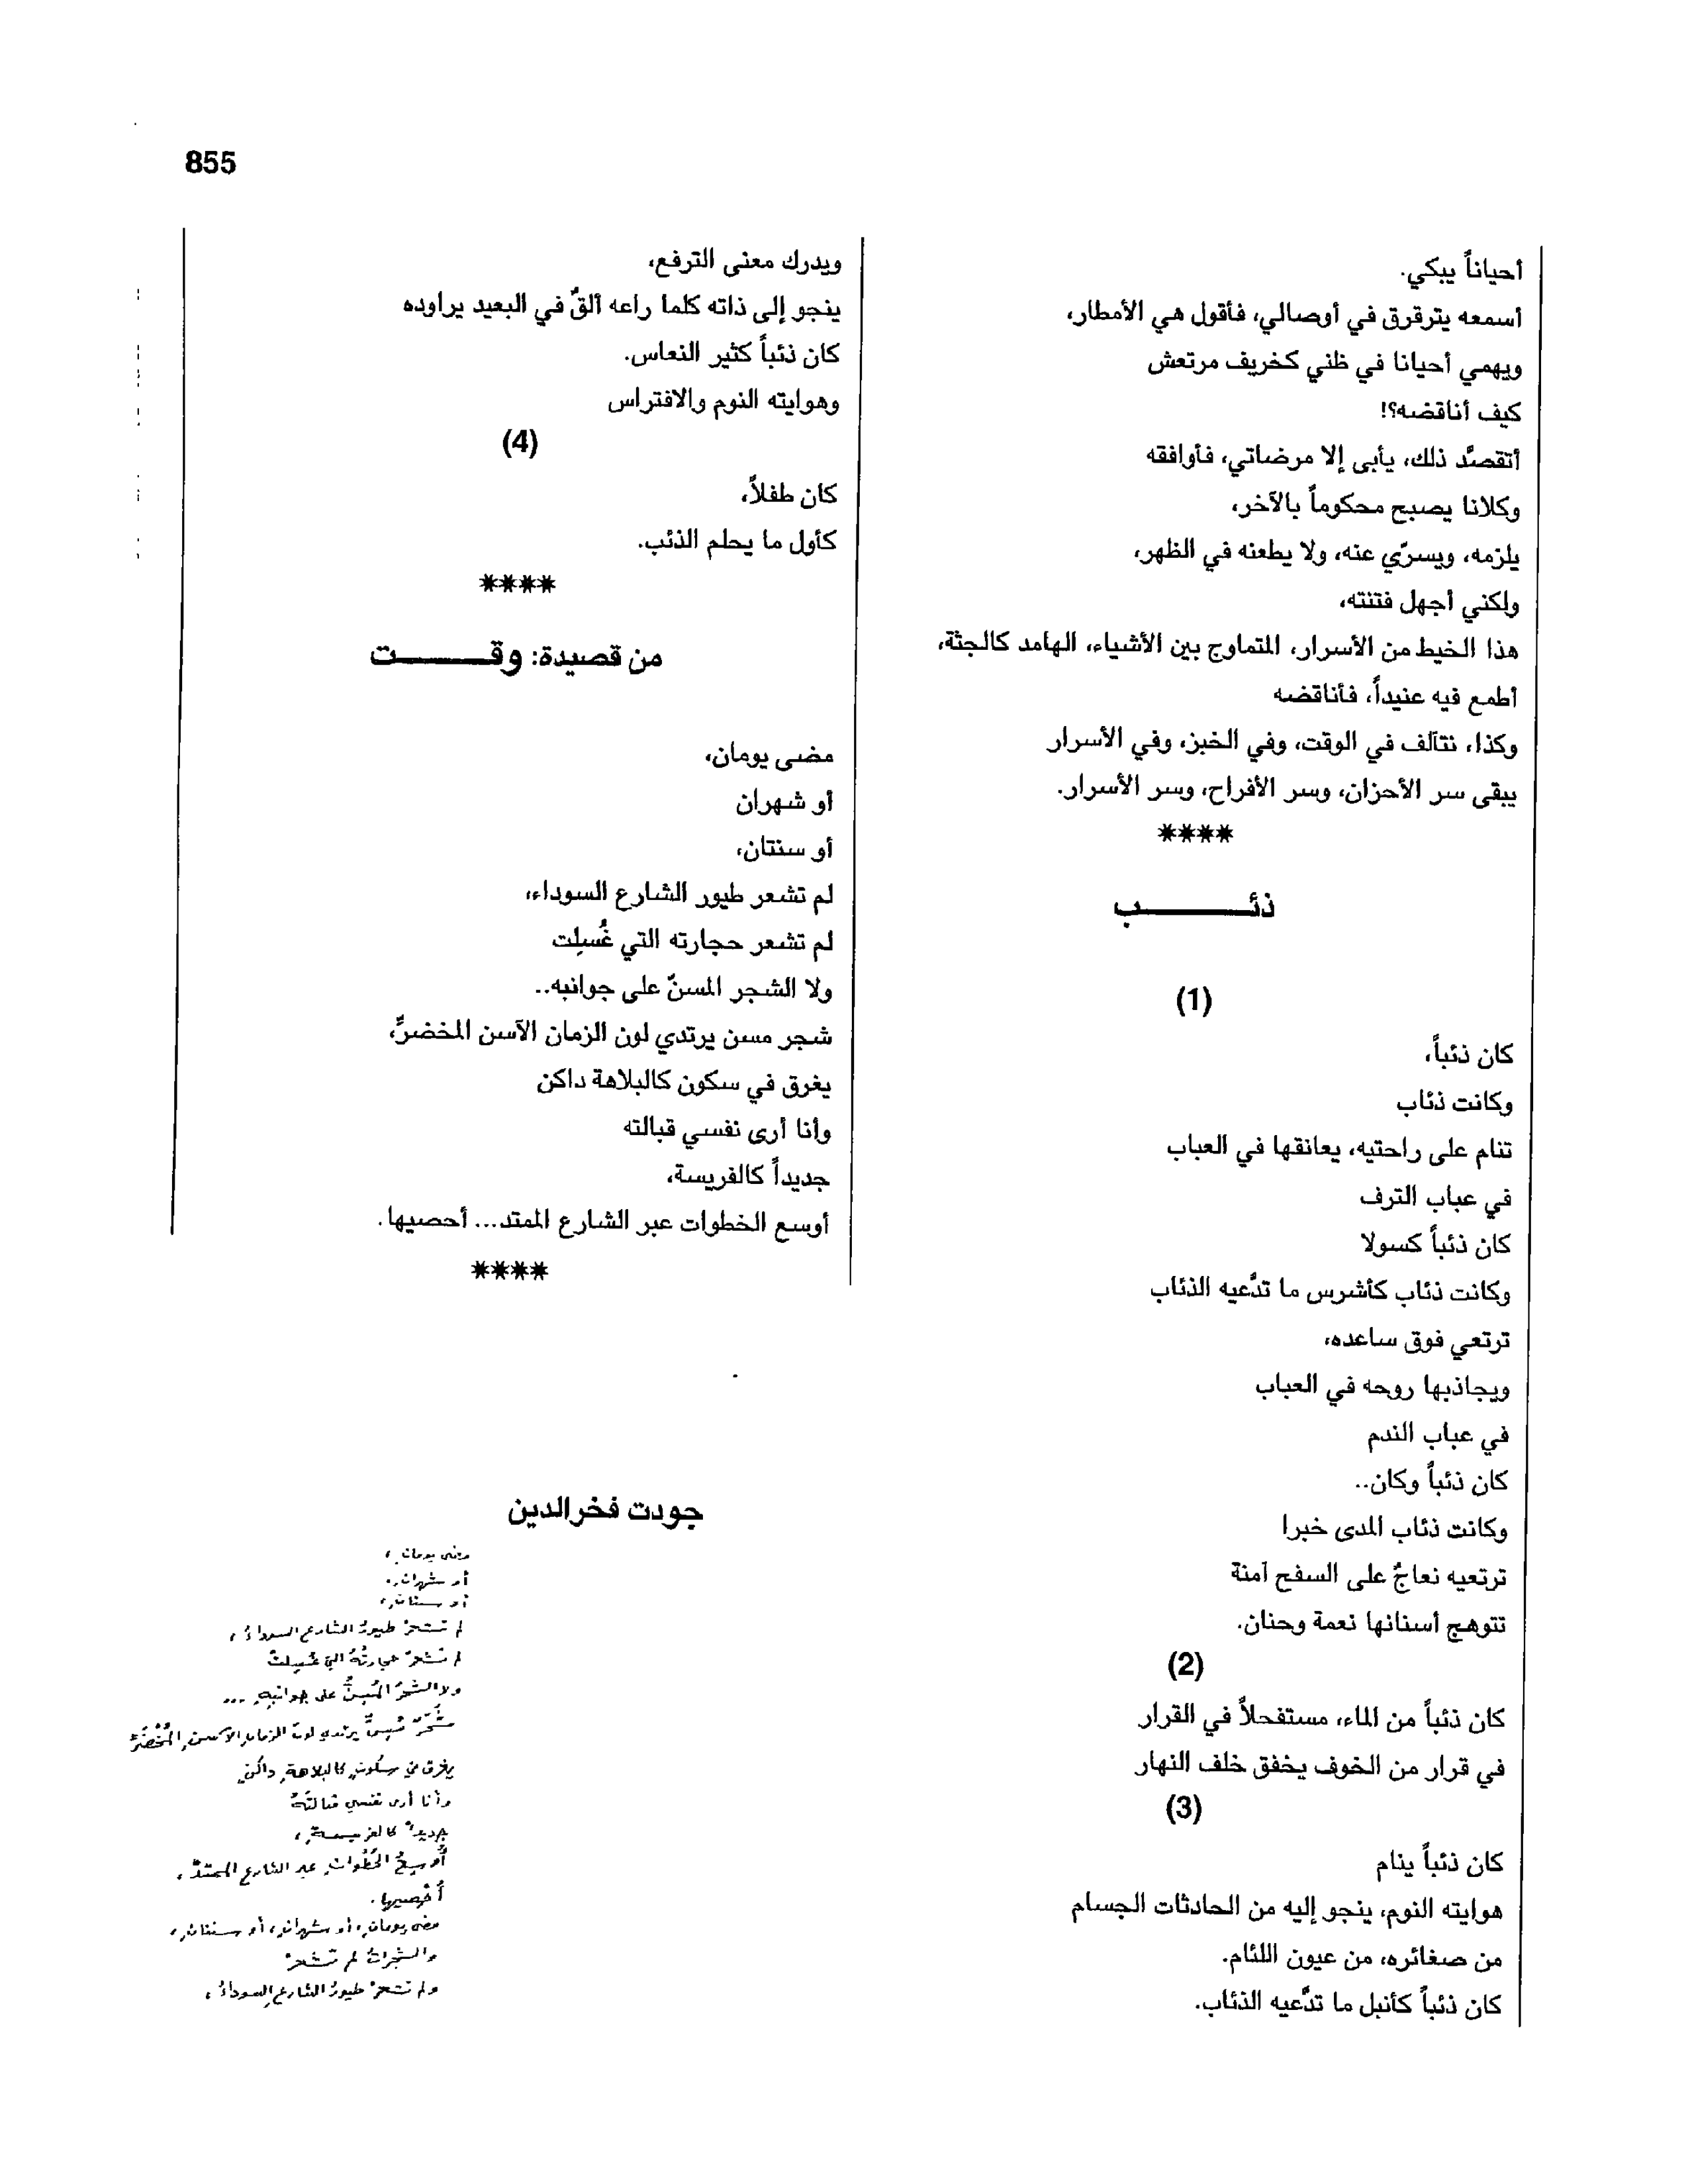 855
أحياناً يبكي.
أسمعه يترقرق في أوصالي، فأقول هي الأمطار،
ويهمي أحيانا في ظني كخريف مرتعش
كيف أناقضه؟!
أتقصَّد ذلك، يأبى إلا مرضاتي، فأوافقه
وكلانا يصبح محكوماً بالآخر،
يلزمه، ويسرّي عنه، ولا يطعنه في الظهر،
ولكني أجهل فتنته،
هذا الخيط من الأسرار، المتماوج بين الأشياء، الهامد كالجثة،
أطمع فيه عنيداً، فأناقضه
وكذا، نتآلف في الوقت، وفي الخبز، وفي الأسرار
يبقى سر الأحزان، وسر الأفراح، وسر الأسرار.
****
ذئـــــــب
(1)
كان ذئباً،
وكانت ذئاب
تنام على راحتيه، يعانقها في العباب
في عباب الترف
كان ذئباً كسولا
وكانت ذئاب كأشرس ما تدَّعيه الذئاب
ترتعي فوق ساعده،
ويجاذبها روحه في العباب
في عباب الندم
كان ذئباً وكان..
وكانت ذئاب المدى خبرا
ترتعيه نعاجٌ على السفح آمنة
تتوهج أسنانها نعمة وحنان.
(2)
كان ذئباً من الماء، مستفحلاً في القرار
في قرار من الخوف يخفق خلف النهار
(3)
كان ذئباً ينام
هوايته النوم، ينجو إليه من الحادثات الجسام
من صغائره، من عيون اللئام.
كان ذئباً كأنبل ما تدَّعيه الذئاب.
ويدرك معنى الترفع،
ينجو إلى ذاته كلما راعه ألقٌ في البعيد يراوده
كان ذئباً كثير النعاس.
وهوايته النوم والافتراس
(4)
كان طفلاً،
كأول ما يحلم الذئب.
****
من قصيدة: وقـــــــت
مضى يومان،
أو شهران
أو سنتان،
لم تشعر طيور الشارع السوداء،
لم تشعر حجارته التي غُسِلت
ولا الشجر المسنّ على جوانبه..
شجر مسن يرتدي لون الزمان الآسن المخضرِّ،
يغرق في سكون كالبلاهة داكن
وأنا أرى نفسي قبالته
جديداً كالفريسة،
أوسع الخطوات عبر الشارع الممتد... أحصيها.
****
جودت فخرالدين
مضى يومانِ،
أو شهرانِ،
أو سنتانِ،
لم تشعرْ طيورُ الشارعِ السوداءُ،
لم تشعرْ حجارتُهُ التي غُسِلتْ
ولا الشجرُ المُسِنُّ على جوانبِهِ ...
شجرٌ مُسِنٌّ يرتدي لونَ الزمانِ الآسنِ المُخْضَرِّ
يغرقُ في سكونٍ كالبلاهةِ داكنٍ
وأنا أرى نفسي قبالتَهُ
جديداً كالفريسةِ،
أُوسِعُ الخُطُواتِ عبر الشارعِ الممتدِّ،
أُحْصِيها.
مضى يومانِ، أو شهرانِ، أو سنتانِ،
والشجراتُ لم تشعرْ
ولم تشعرْ طيورُ الشارعِ السوداءُ،